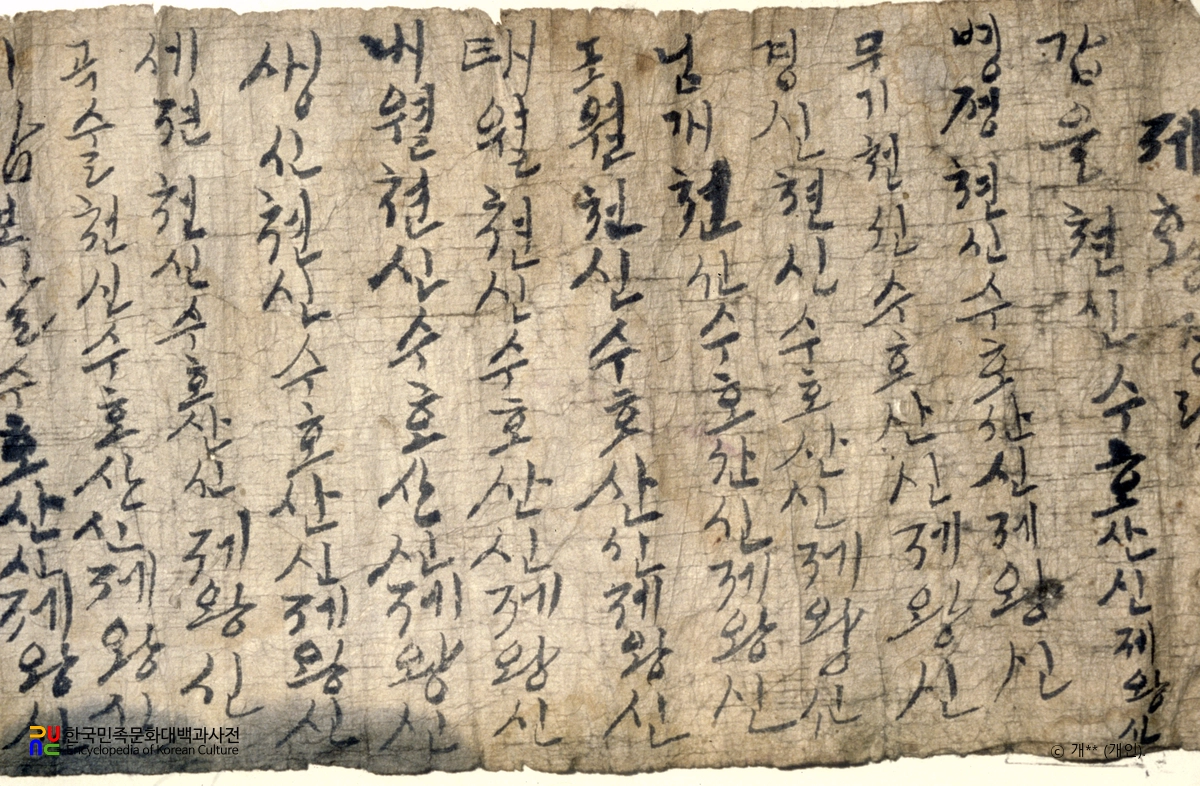 제
갑을현신수호산신제왕신
병졍현신수호산신제왕신
무기현신수호산신제왕신
경신현신수호산신제왕신
님개현신수호산신제왕신
포월현신수호산신제왕신
태월현신수호산신제왕신
내월현신수호산신제왕신
생신현신수호산신제왕신
세현현신수호산신제왕신
곡수을현신수호산신제왕신
수호산신제왕신
한국민족문화대백과사전
Encyclopedia of Korean Culture
ⓒ 개** (개인)